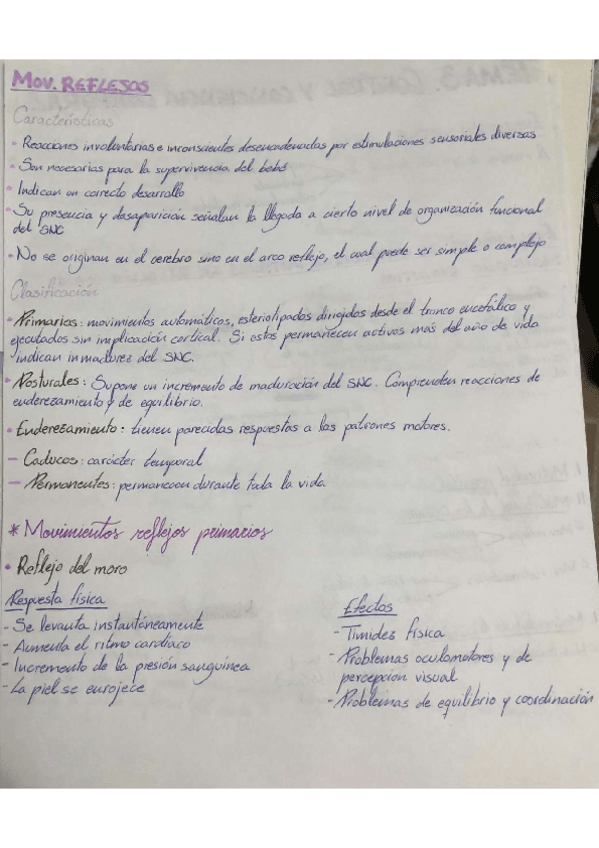 MOV. REFLEJOS
Características
- Reacciones involuntarias e inconscientes desencadenadas por estimulaciones sensoriales diversas
- Son necesarias para la supervivencia del bebé
- Indican un correcto desarrollo
- Su presencia y desaparición señalan la llegada a cierto nivel de organización funcional
del SNC
- No se originan en el cerebro sino en el arco reflejo, el cual puede ser simple o complejo
Clasificación
- Primarios: movimientos automáticos, esteriotipados dirigidos desde el tronco encefálico y
ejecutados sin implicación cortical. Si estos permanecen activos más del año de vida
indican inmadurez del SNC.
- Posturales: Supone un incremento de maduración del SNC. Comprenden reacciones de
enderezamiento y de equilibrio.
- Enderezamiento: tienen parecidas respuestas a los patrones motores.
- Caducos: carácter temporal
- Permanentes: permanecen durante toda la vida.
* Movimientos reflejos primarios
- Reflejo del moro
Respuesta física
- Se levanta instantáneamente
- Aumenta el ritmo cardíaco
- Incremento de la presión sanguínea
- La piel se enrojece
Efectos
- Timidez física
- Problemas oculomotores y de
percepción visual
- Problemas de equilibrio y coordinación